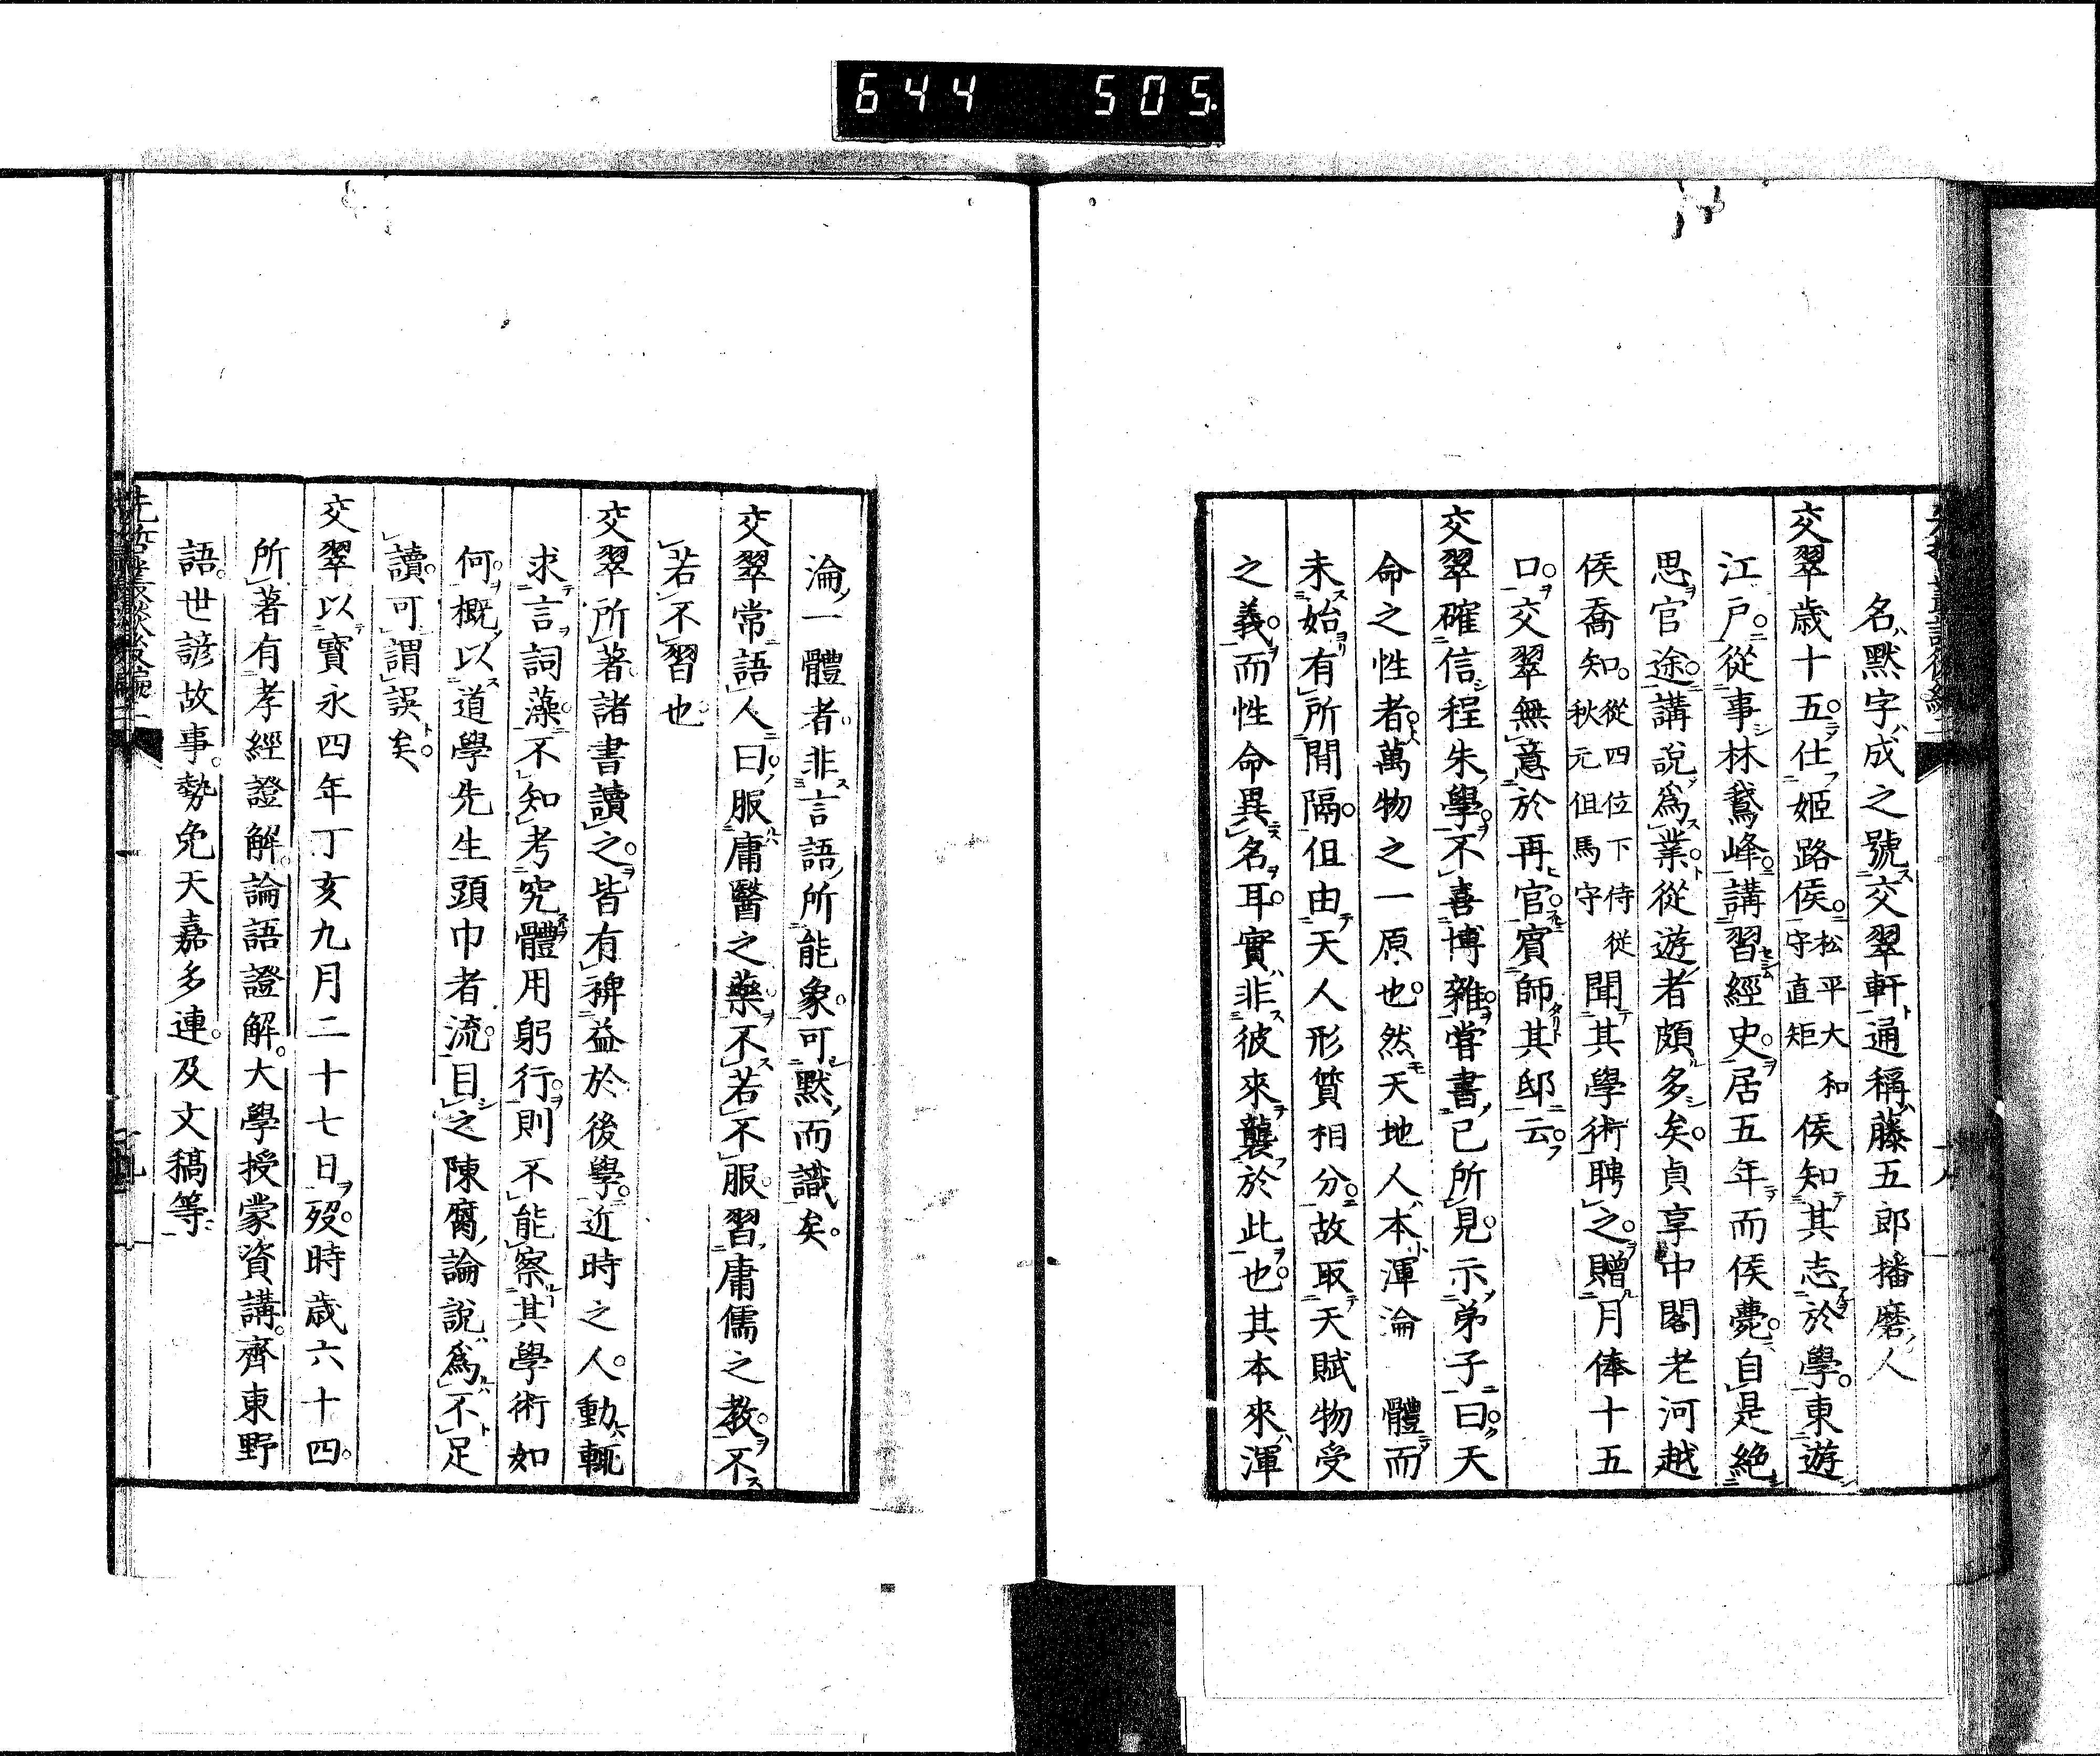 644 505
名默字成之號交翠軒通稱藤五郎播磨人
交翠歳十五仕姬路侯松平大和守直矩侯知其志於學東遊
江戸從事林鵞峰講習經史居五年而侯薨自是絶
思官途講說爲業從遊者頗多矣貞享中閣老河越
侯喬知從四位下侍從秋元但馬守聞其學術聘之贈月俸十五
口交翠無意於再官賓師其邸云
交翠確信程朱學不喜博雜嘗書已所見示弟子曰天
命之性者萬物之一原也然天地人本渾淪 體而
未始有所間隔但由天人形質相分故取天賦物受
之義而性命異名耳實非彼來襲於此也其本來渾
淪一體者非言語所能象可默而識矣
交翠常語人曰服庸醫之藥不若不服習庸儒之教不
若不習也
交翠所著諸書讀之皆有裨益於後學近時之人動輒
求言詞藻不知考究體用躬行則不能察其學術如
何概以道學先生頭巾者流目之陳腐論說爲不足
讀可謂誤矣
交翠以寳永四年丁亥九月二十七日歿時歳六十四
所著有孝經證解論語證解大學授蒙資講齊東野
語世諺故事勢免天嘉多連及文稿等